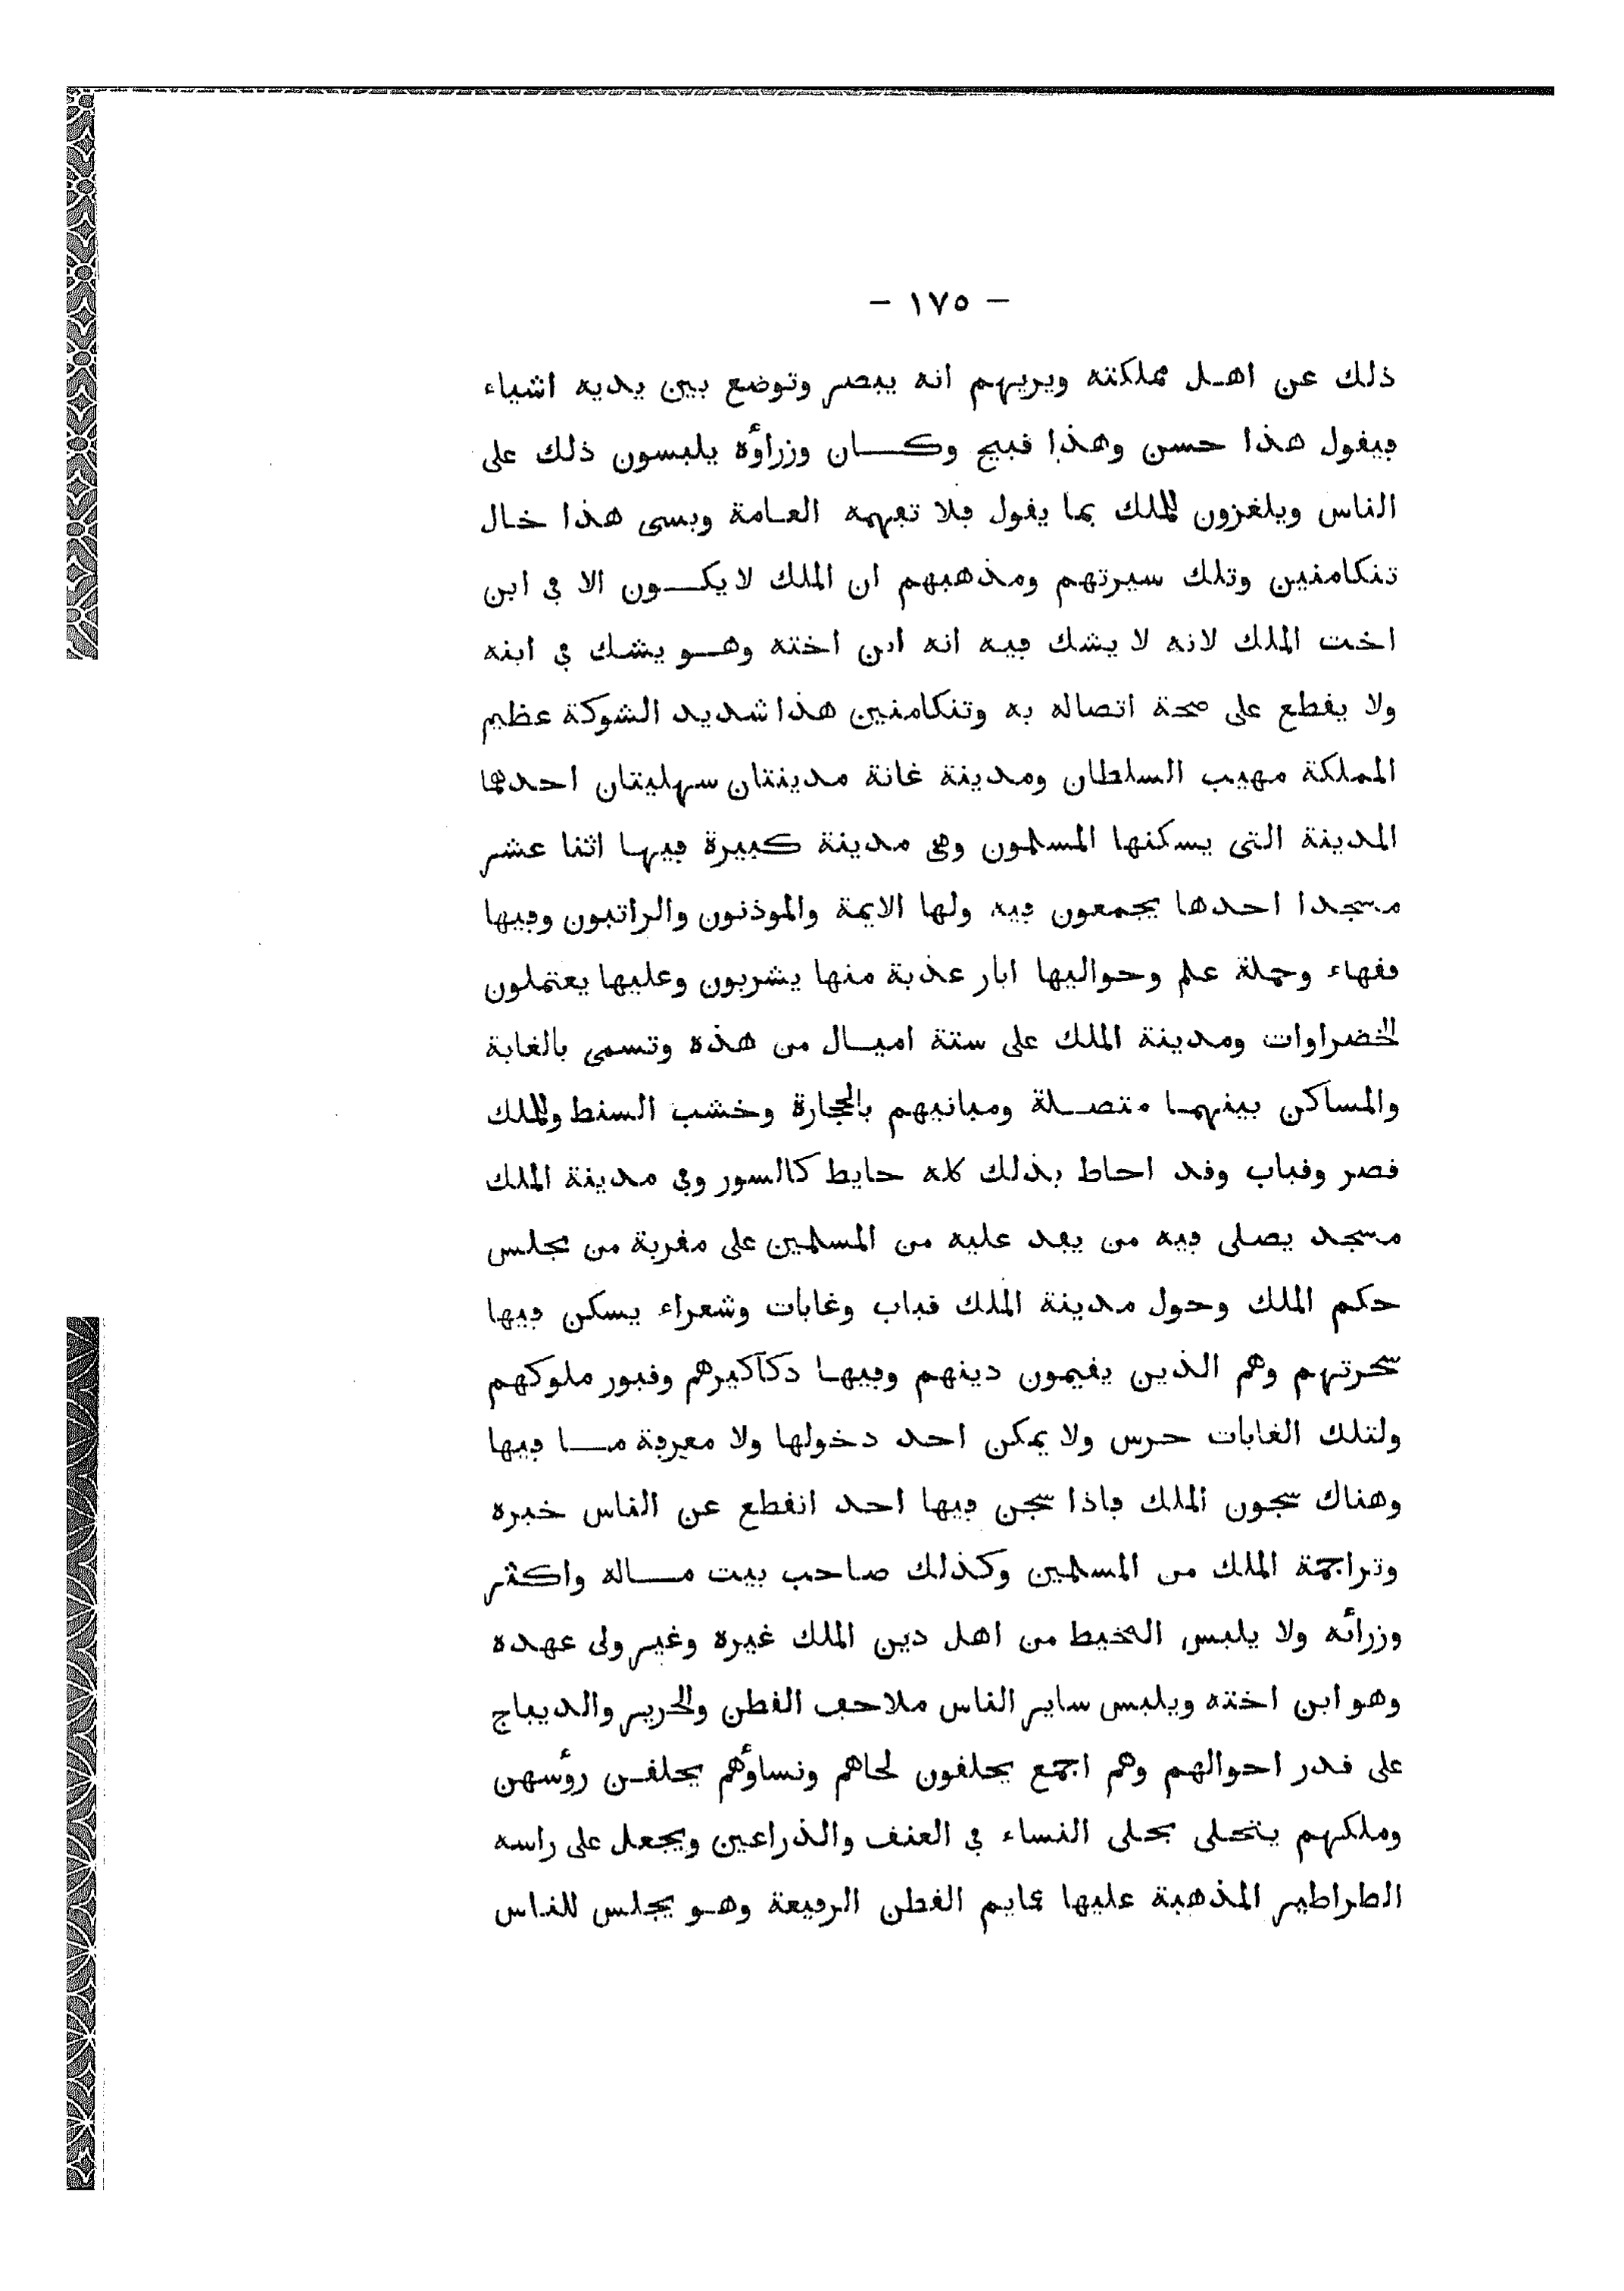 - ١٧٥ -
ذلك عن اهل مملكته ويريهم انه يبصر وتوضع بين يديه اشياء
فيقول هذا حسن وهذا قبيح وكان وزراؤه يلبسون ذلك على
الناس ويلغزون للملك بما يقول فلا تفهمه العامة وبسى هذا خال
تنكامنين وتلك سيرتهم ومذهبهم ان الملك لا يكون الا في ابن
اخت الملك لانه لا يشك فيه انه ابن اخته وهو يشك في ابنه
ولا يقطع على صحة اتصاله به وتنكامنين هذا شديد الشوكة عظيم
المملكة مهيب السلطان ومدينة غانة مدينتان سهليتان احدهما
المدينة التى يسكنها المسلمون وهى مدينة كبيرة فيها اثنا عشر
مسجدا احدها يجمعون فيه ولها الايمة والموذنون والراتبون وفيها
فقهاء وحملة علم وحواليها ابار عذبة منها يشربون وعليها يعتملون
الخضراوات ومدينة الملك على ستة اميال من هذه وتسمى بالغابة
والمساكن بينهما متصلة ومبانيهم بالحجارة وخشب السنط وللملك
قصر وقباب وقد احاط بذلك كله حايط كالسور وفي مدينة الملك
مسجد يصلى فيه من يفد عليه من المسلمين على مقربة من مجلس
حكم الملك وحول مدينة الملك قباب وغابات وشعراء يسكن فيها
سحرتهم وهم الذين يقيمون دينهم وفيها دكاكيرهم وقبور ملوكهم
ولتلك الغابات حرس ولا يمكن احد دخولها ولا معرفة ما فيها
وهناك سجون الملك فاذا سجن فيها احد انقطع عن الناس خبره
وتراجمة الملك من المسلمين وكذلك صاحب بيت ماله واكثر
وزرائه ولا يلبس المخيط من اهل دين الملك غيره وغير ولى عهده
وهو ابن اخته ويلبس ساير الناس ملاحف القطن والحرير والديباج
على قدر احوالهم وهم اجمع يحلقون لحاهم ونساؤهم يحلقن رؤسهن
وملكهم يتحلى بحلى النساء في العنق والذراعين ويجعل على راسه
الطراطير المذهبة عليها عمايم القطن الرفيعة وهو يجلس للناس